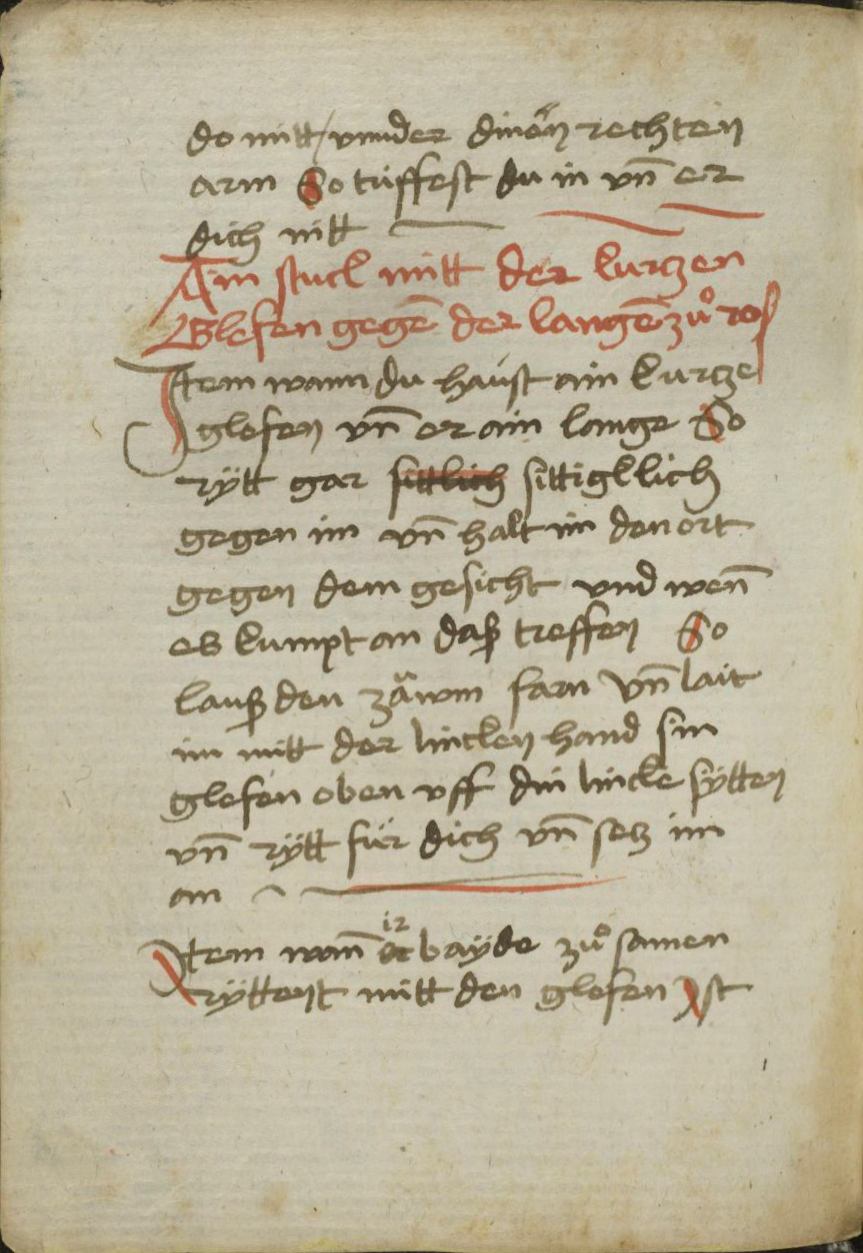 do mitt / vnnder dinen rechten
arm So triffest du in vn̄ er
dich nitt
Ain stuck mitt der kurtzen
Glefen gegē der langē zuͦ roß
Item wann du haúst ain kurtze
glefen vn̄ er ain lange So
rÿtt gar sittlich sittigllich
gegen im vn̄ halt im den ort
gegen dem gesicht vnd wen̄
es kumpt an daß treffen So
lauß den zäwm farn vn̄ lait
im mitt der lincken hand sin
glefen oben vff din lincke sÿtten
vn̄ rÿtt für dich vn̄ setz im
an
Item wan̄ ir baÿde zuͦ samen
rÿttent mitt den glefen Ist